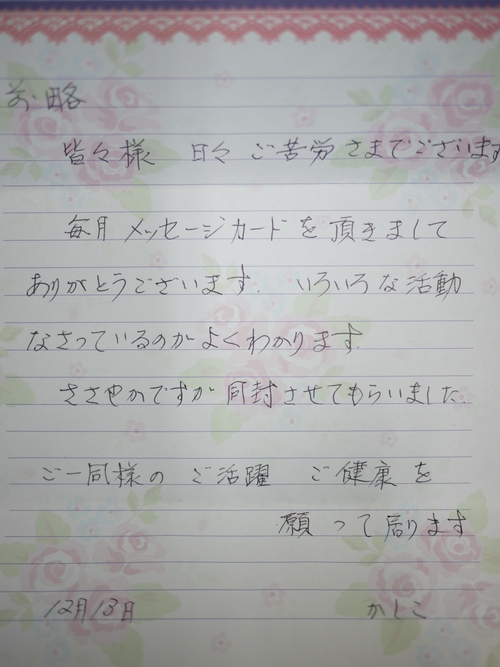 前略
皆々様 日々ご苦労さまでございます
毎月メッセージカードを頂きまして
ありがとうございます. いろいろな活動
なさっているのがよくわかります.
ささやかですが同封させてもらいました.
ご一同様のご活躍 ご健康を
願って居ります
12月13日 かしこ